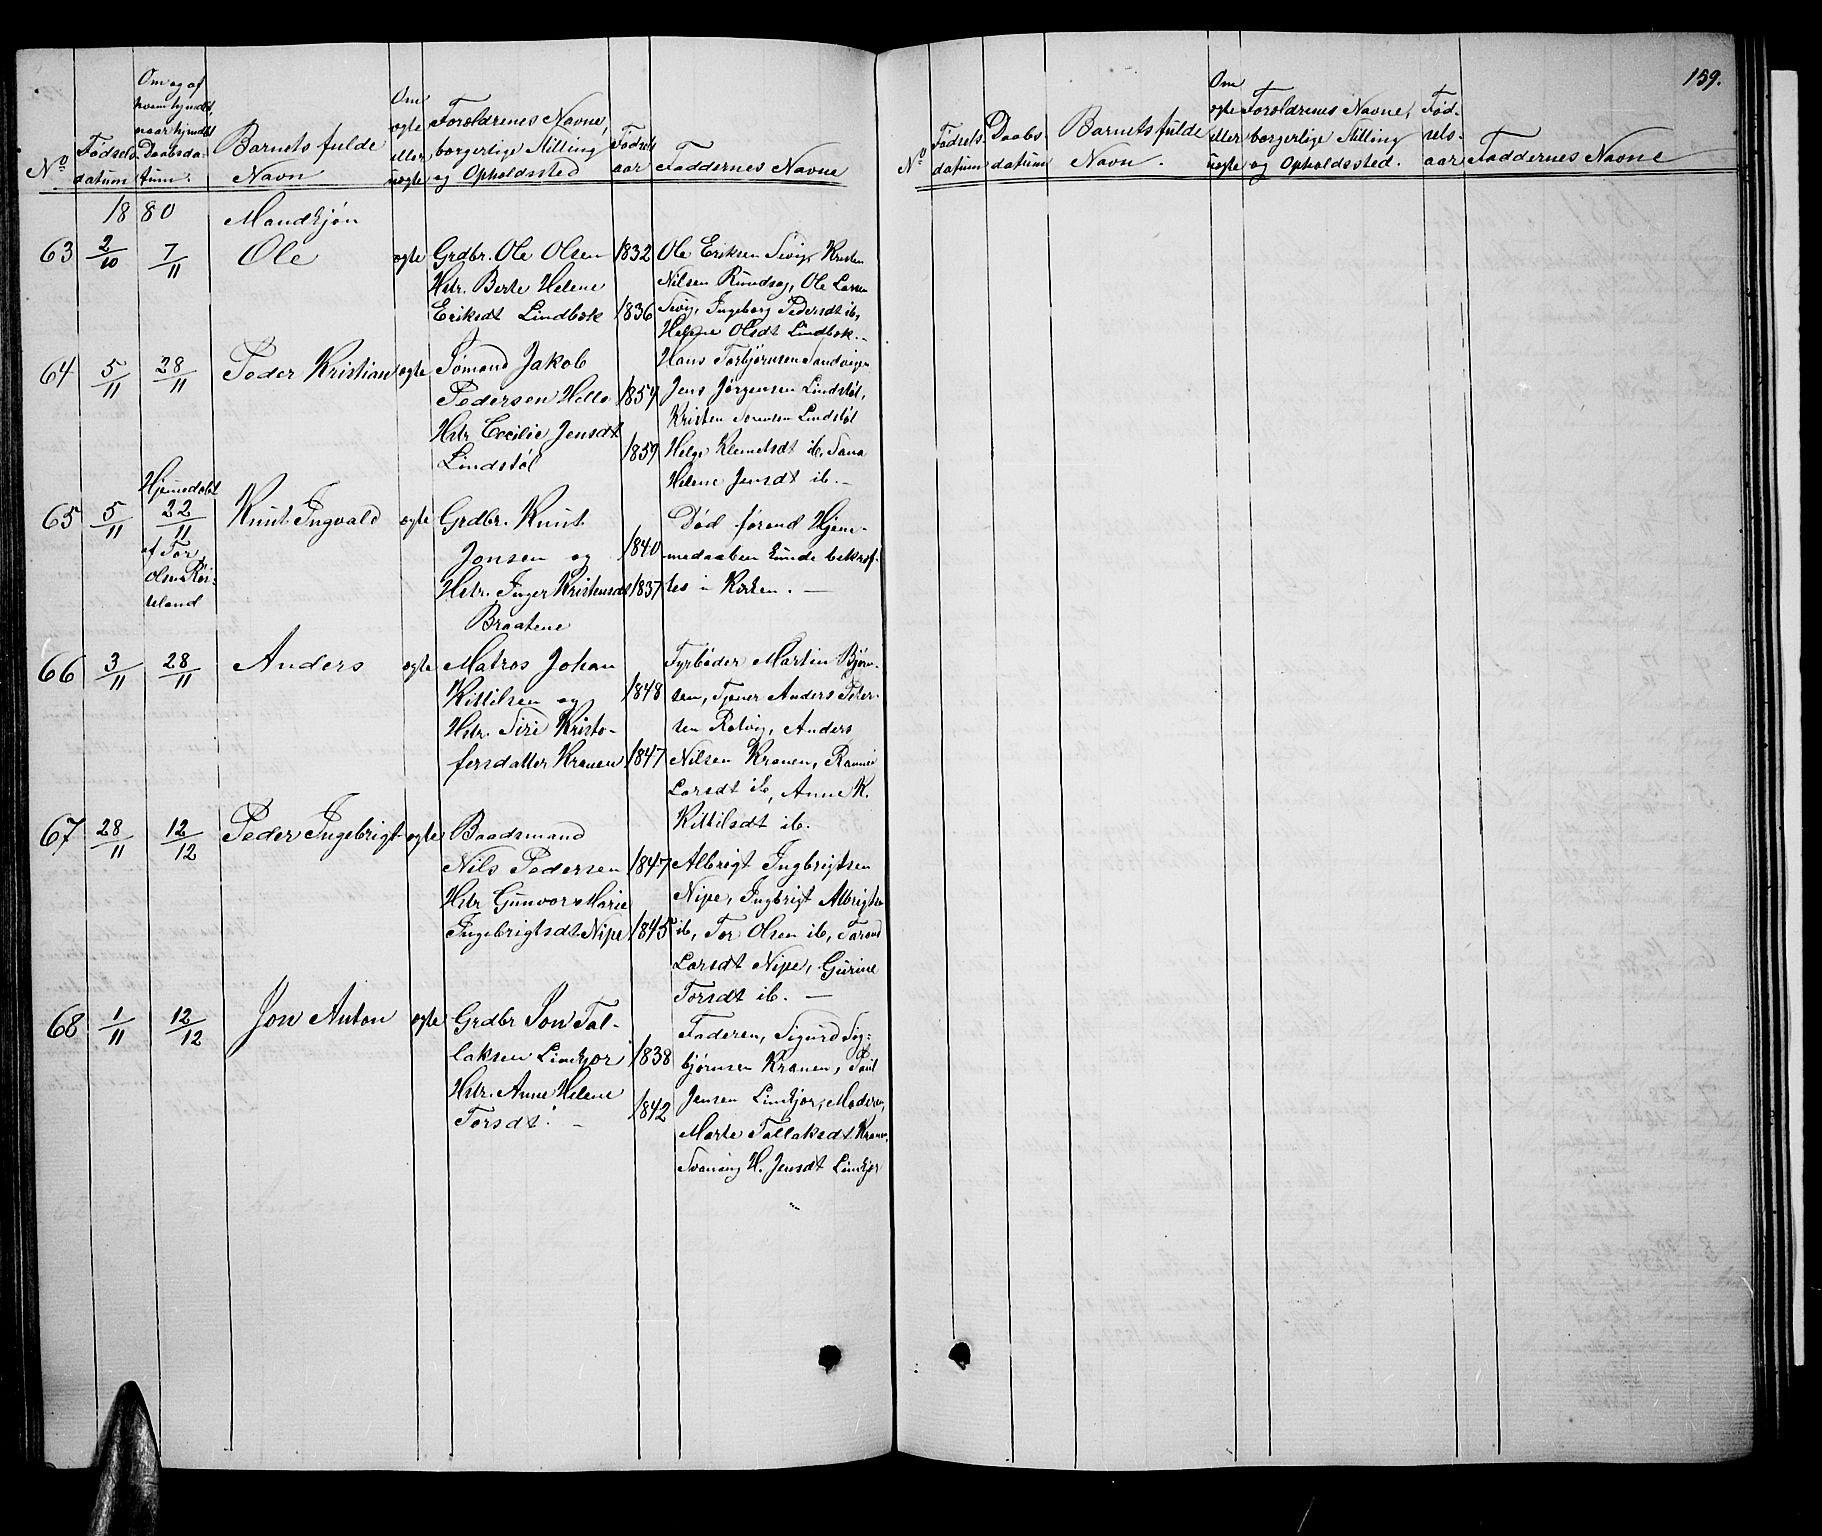 No
Fødsels-
datum
Om og af
hvem hjmdbt,
naar hjmdbt
Daabsda-
tum.
Barnets fulde
Navn
Om
ægte
eller
uægte
Forældrenes Navne,
borgerlige Stilling
og Opholdssted
Fødsels
aar
Faddernes Navne
1880
Mandkjøn
63
2/10
7/11
Ole
ægte
Grdbr. Ole Olsen
Hstr. Berte Helene
Eriksdt Lindbæk
1832
1836
Ole Eriksen Sevig, Kristen
Nilsen Rundsag, Ole Larsen
Sevig, Ingeborg Pedersdt ib,
Helene Olsdt Lindbæk.
64
5/11
28/11
Peder Kristian
ægte
Sømand Jakob
Pedersen Helle
Hstr. Cecilie Jensdt
Lindstøl
1854
1859
Hans Torbjørnsen Sandvigen
Jens Jørgensen Lindstøl,
Kristen Sørensen Lindstøl
Helge Klemetsdt ib, Tana
Helene Jensdt ib. —
65
5/11
Hjemedøbt
22/11
af Tor
Olsen Røi-
seland
Knut Ingvald
ægte
Grdbr. Knut
Jonsen og
Hstr. Inger Kristensdt
Braatene
1840
1837
Død førend Hjem-
medaaben kunde bekræf-
tes i Kirken. —
66
3/11
28/11
Anders
ægte
Matros Johan
Kittilsen og
Hstr. Siri Kristo-
fersdatter Kranen
1848
1847
Fyrbøder Martin Bjørn-
sen, Tjener Anders Peter-
sen Rolvig, Anders
Nilsen Kranen,
Larsdt ib, Anne K.
Kittilsdt ib.
67
28/11
12/12
Peder Ingebrigt
ægte
Baadsmand
Nils Pedersen
Hstr Gunvor Marie
Ingebrigtsdt Nipe
1847
1845
Albregt Ingbrigtsen
Nipe, Ingbrigt Albrigtsen
ib, Tor Olsen ib, Torand
Larsdt Nipe, Gurine
Torsdt ib. —
68
1/11
12/12
Jon Anton
ægte
Grdbr Jon Tal-
laksen Limkjær
Hstr. Anne Helene
Torsdt. —
1838
1842
Faderen, Sigurd Sig-
bjørnsen Kranen, Poul
Jensen Limkjær, Moderen,
Marte Tallaksdt Kranen,
H. Jensdt Limkjær
159.
No
Fødsels-
datum
Daabs
datum
Barnets fulde
Navn.
Om
ægte
eller
uægte
Forældrenes Navne,
borgerlige Stilling
og Opholdssted.
Fød-
sels-
aar
Faddernes Navne